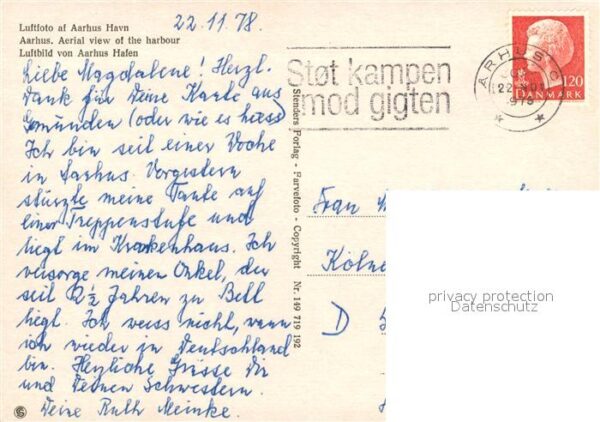 Luftfoto af Aarhus Havn
Aarhus. Aerial view of the harbour
Luftbild von Aarhus Hafen
22.11.78.
Liebe Magdalene! Herzl.
Dank für Deine Karte aus
Gmünden (oder wie es hiess)
Ich bin seit einer Woche
in Aarhus. Vorgestern
stürzte meine Tante auf
einer Treppenstufe und
liegt im Krankenhaus. Ich
versorge meinen Onkel, der
seit 2½ Jahren zu Bett
liegt. Ich weiss nicht, wann
ich wieder in Deutschland
bin. Herzliche Grüsse Dir
und Deinen Schwestern.
Deine Ruth Meinke.
Stenders Forlag - Farvefoto - Copyright Nr. 149 719 192
Støt kampen
mod gigten
AARHUS C
22
1978
120
DANMARK
Frau M
Kölne
D
privacy protection
Datenschutz